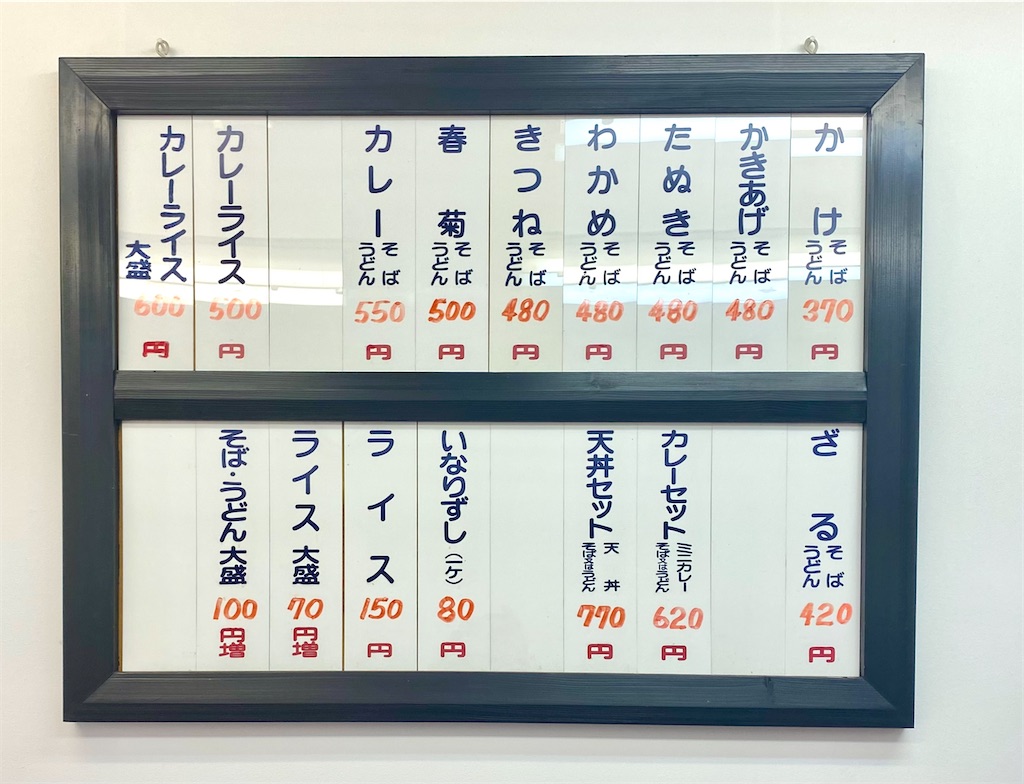 かけ そば うどん 370 円
かきあげ そば うどん 480 円
たぬき そば うどん 480 円
わかめ そば うどん 480 円
きつね そば うどん 480 円
春菊 そば うどん 500 円
カレー そば うどん 550 円
カレーライス 500 円
カレーライス 大盛 600 円
ざる そば うどん 420 円
カレーセット ミニカレー そば又はうどん 620 円
天丼セット 天丼 そば又はうどん 770 円
いなりずし (一ケ) 80 円
ライス 150 円
ライス 大盛 70 円増
そば・うどん 大盛 100 円増